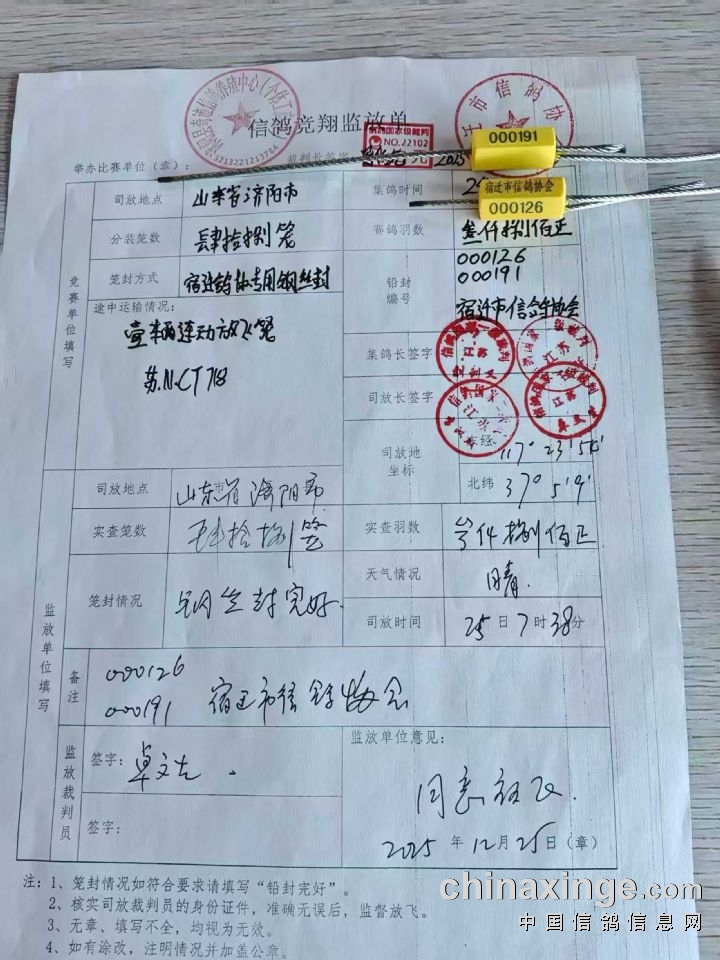 信鸽竞翔监放单
000191
宿迁市信鸽协会
000126
NO.22102
3213221213786
举办比赛单位（章）：
竞赛单位填写
司放地点 山东省济阳市 集鸽时间
分装笼数 肆拾捌笼 赛鸽羽数 叁仟捌佰正
笼封方式 宿迁鸽协专用钢丝封 铅封编号 000126
000191
宿迁市信鸽协会
途中运输情况：
壹辆连动放飞笼
苏.N.CT718
集鸽长签字
司放长签字
司放地坐标 东经 117° 23′ 54′
北纬 37° 5′ 9′
监放单位填写
司放地点 山东省济阳市
实查笼数 肆拾捌笼 实查羽数 叁仟捌佰正
笼封情况 钢丝封完好. 天气情况 晴.
司放时间 25日7时38分
备注 000126
000191 宿迁市信鸽协会
监放裁判员
签字： 监放单位意见：
同意放飞.
签字：
2025年12月25日（章）
注：1、笼封情况如符合要求请填写“铅封完好”。
2、核实司放裁判员的身份证件，准确无误后，监督放飞。
3、无章、填写不全，均视为无效。
4、如有涂改，注明情况并加盖公章。
chinaxinge.com
中国信鸽信息网